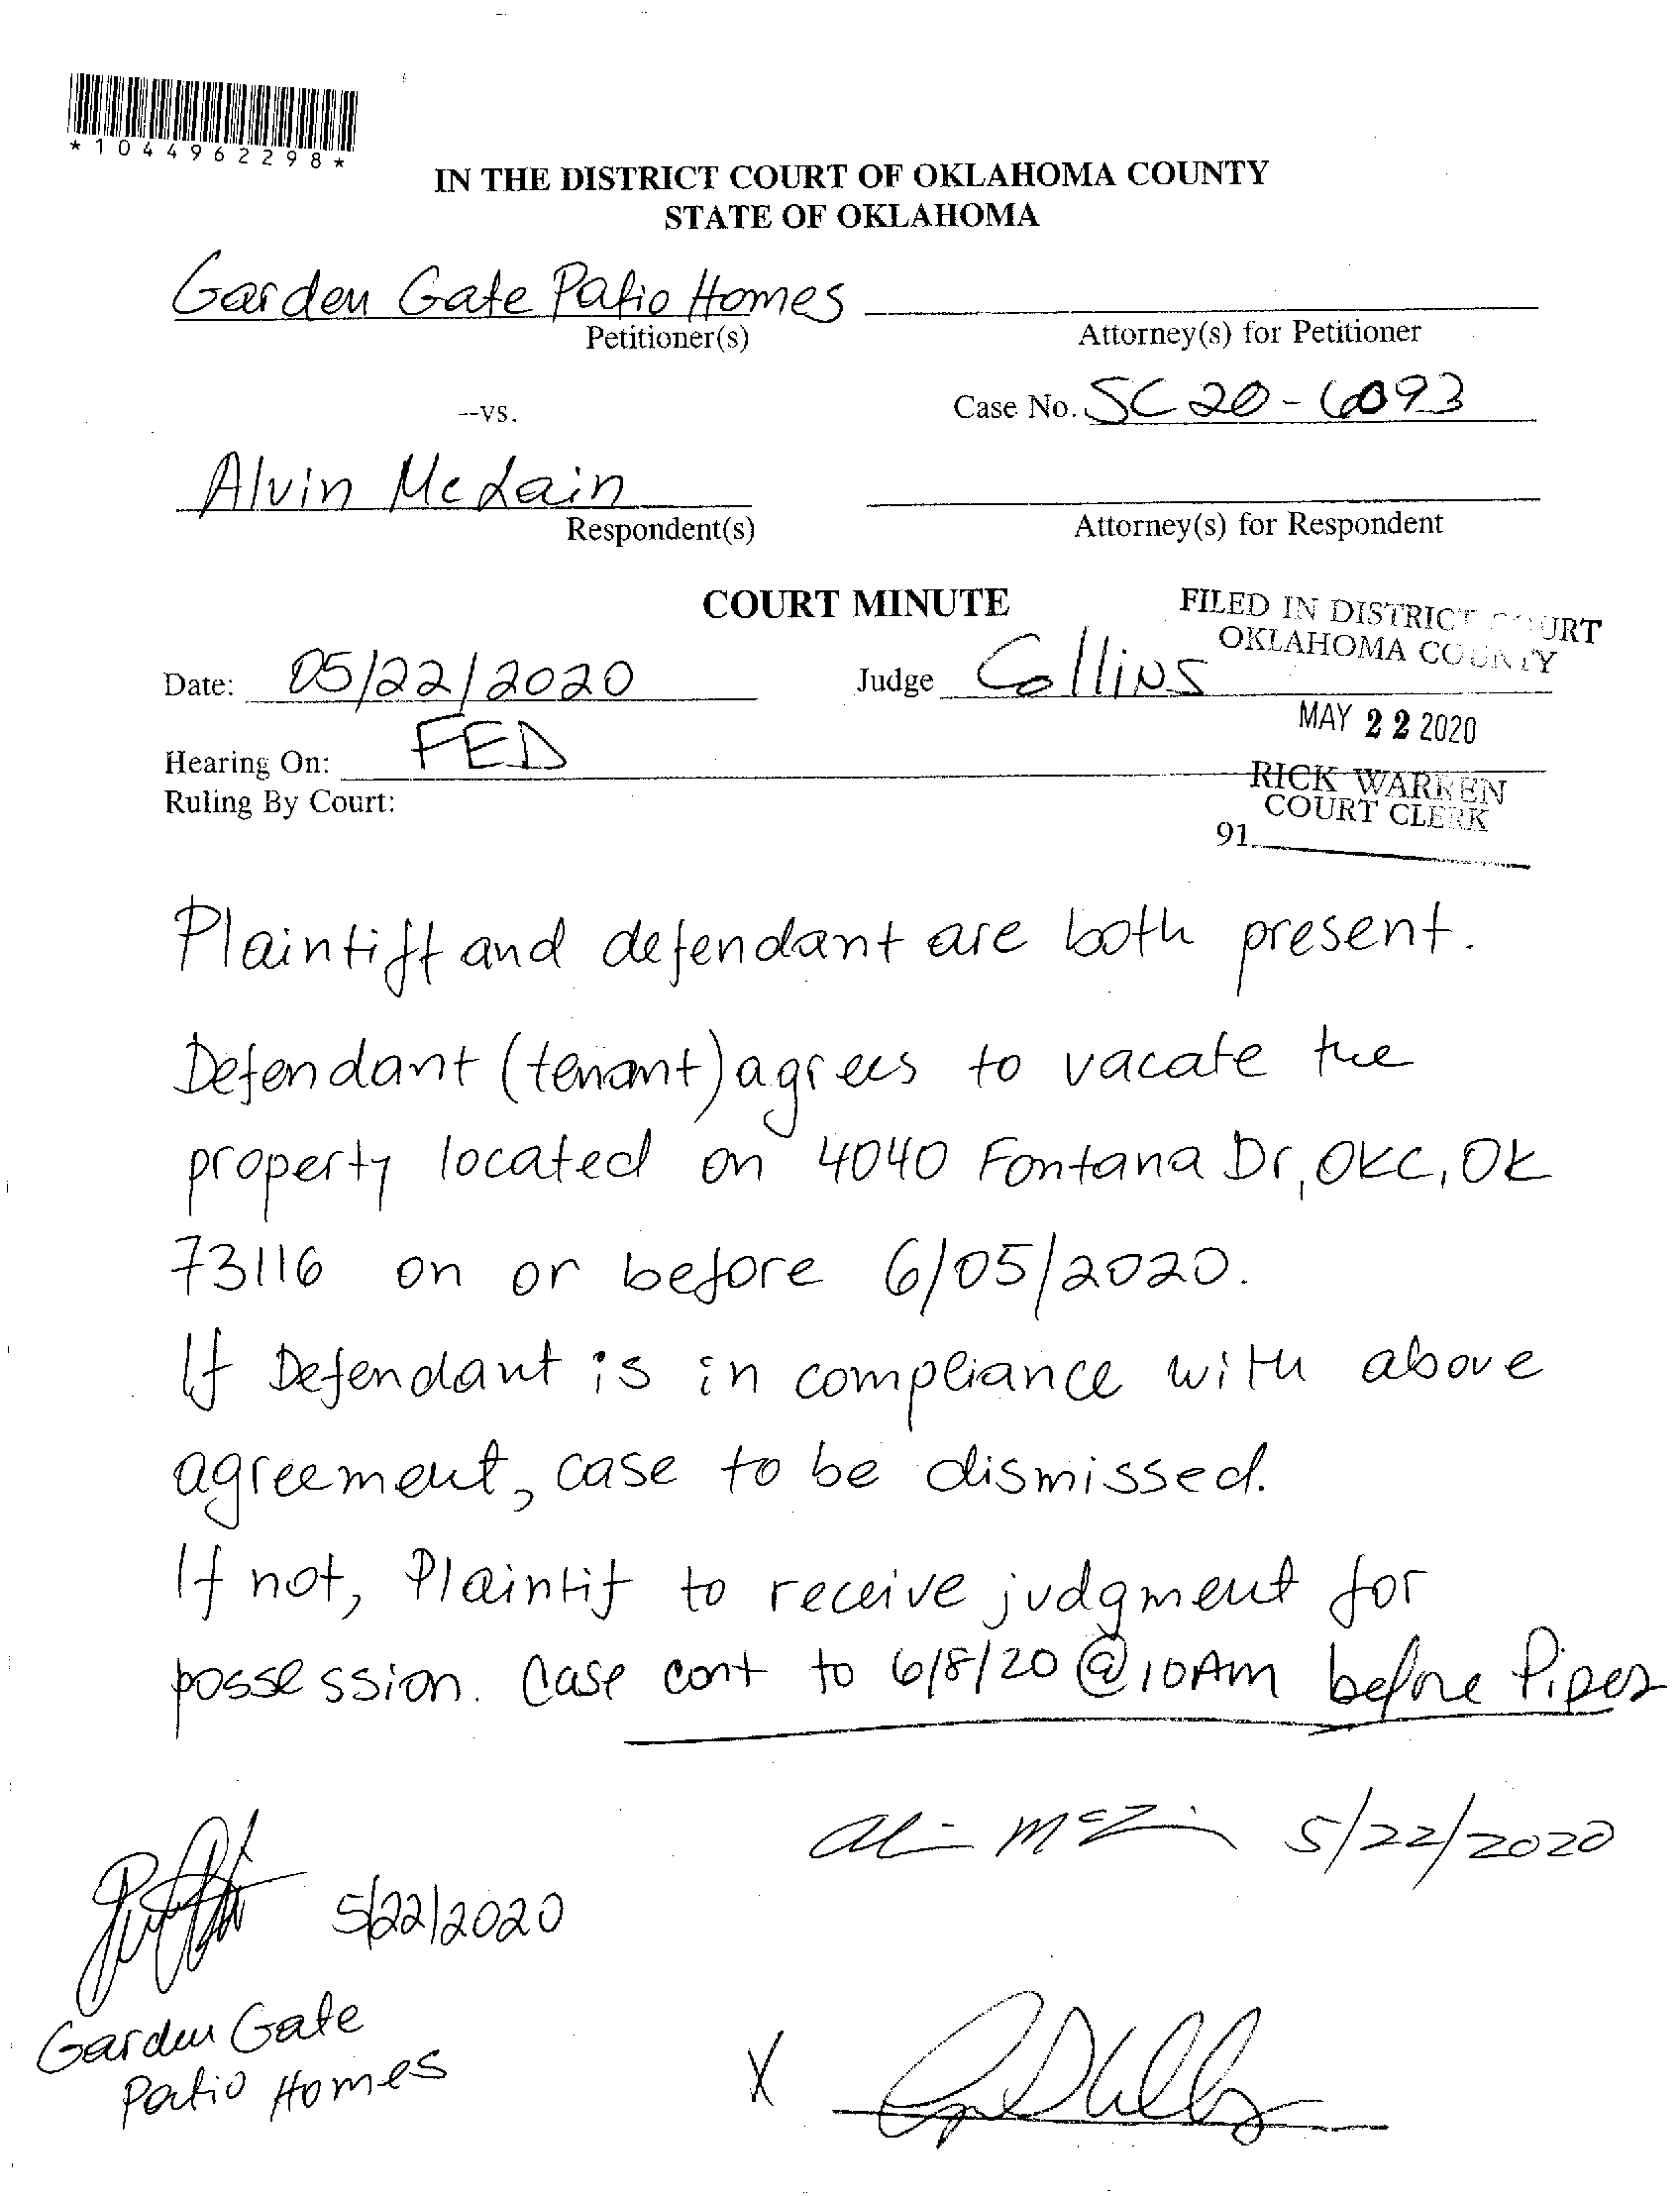 *1044962298*
IN THE DISTRICT COURT OF OKLAHOMA COUNTY
STATE OF OKLAHOMA
Garden Gate Patio Homes
Petitioner(s)
Attorney(s) for Petitioner
--vs.
Case No. SC 20-6093
Alvin McLain
Respondent(s)
Attorney(s) for Respondent
COURT MINUTE
FILED IN DISTRICT COURT
OKLAHOMA COUNTY
Date: 05/22/2020
Judge Collins
MAY 22 2020
Hearing On: FED
RICK WARREN
COURT CLERK
Ruling By Court:
91
Plaintiff and defendant are both present.
Defendant (tenant) agrees to vacate the
property located on 4040 Fontana Dr, OKC, OK
73116 on or before 6/05/2020.
If Defendant is in compliance with above
agreement, case to be dismissed.
If not, Plaintif to receive judgment for
possession. Case cont to 6/8/20 @ 10AM before Piper
Alvin McLain 5/22/2020
5/22/2020
Garden Gate
Patio Homes
X